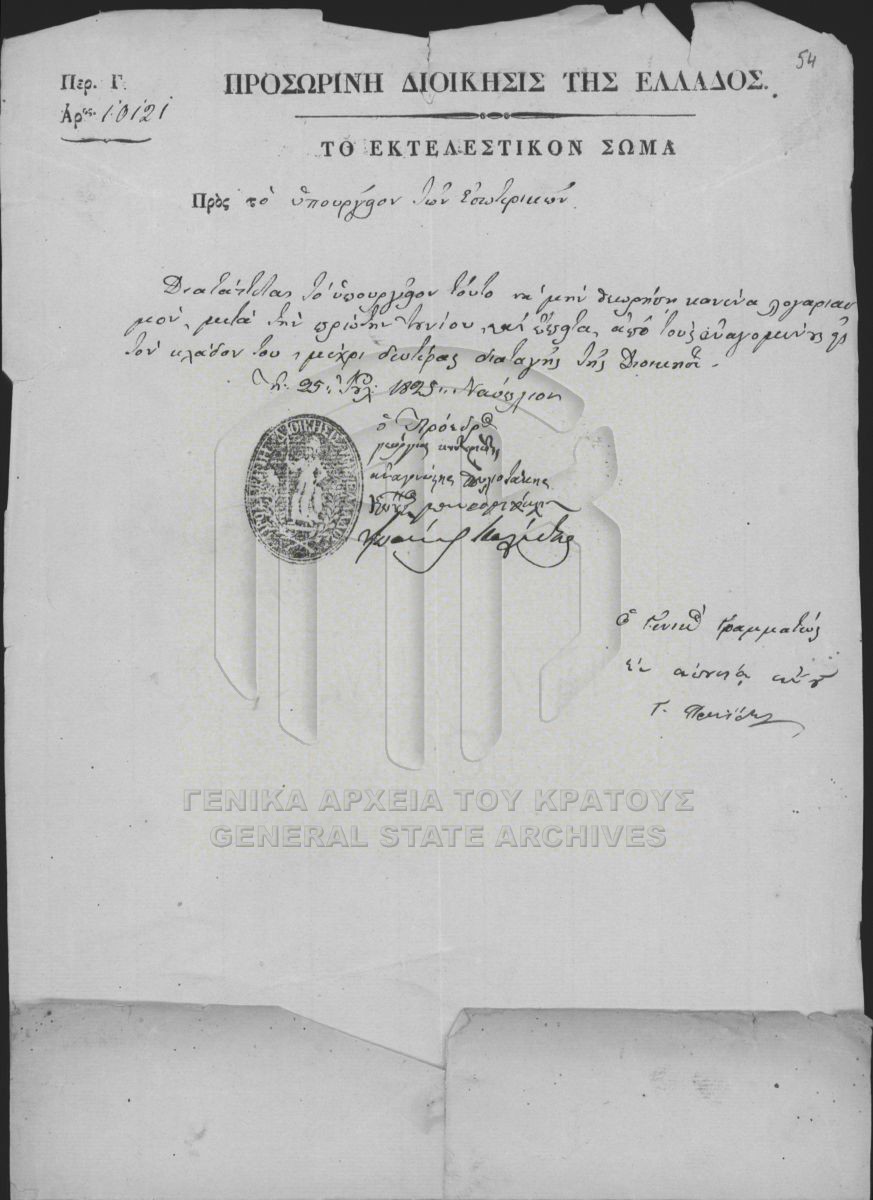 54
Περ. Γ.
Αρ. 10121
ΠΡΟΣΩΡΙΝΗ ΔΙΟΙΚΗΣΙΣ ΤΗΣ ΕΛΛΑΔΟΣ.
ΤΟ ΕΚΤΕΛΕΣΤΙΚΟΝ ΣΩΜΑ
Πρὸς τὸ ὑπουργεῖον τῶν Ἐσωτερικῶν
Διατάττεται τὸ ὑπουργεῖον τοῦτο νὰ μὴν θεωρήση κανένα λογαριασ
μὸν, μετὰ τὴν πρώτην Ἰουνίου, καὶ ἔπειτα, ἀπὸ τοὺς ἀναγομένους εἰς
τὸν κλάδον του, μέχρι δευτέρας διαταγῆς τῆς Διοικήσε
Τῇ 25 1825 Ναύπλιον
ὁ Πρόεδρος
γεώργιος
ἀναγνώτης
ὁ Γενικὸς Γραμματεὺς
ΓΕΝΙΚΑ ΑΡΧΕΙΑ ΤΟΥ ΚΡΑΤΟΥΣ
GENERAL STATE ARCHIVES